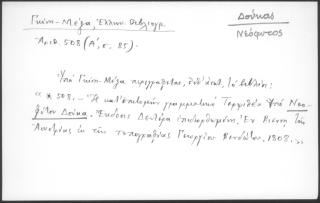 Γκίνη - Μέξα, Ἑλλην. Βιβλιογρ.
Ἀριθ. 508 (Α', σ. 85).
Δούκας
Νεόφυτος
Ὑπὸ Γκίνη - Μέξα περιγράφεται, ἀριθ., τὸ βιβλίον:
« * 508. - Ἡ κατ' ἐπιτομὴν γραμματικὴ Τερψιθέα ὑπὸ Νεο-
φύτου Δούκα. Ἔκδοσις Δευτέρα ἐπιδιορθωμένη. Ἐν Βιέννῃ τῆς
Ἀουστρίας ἐκ τῆς τυπογραφίας Γεωργίου Βενδώτου. 1808. »